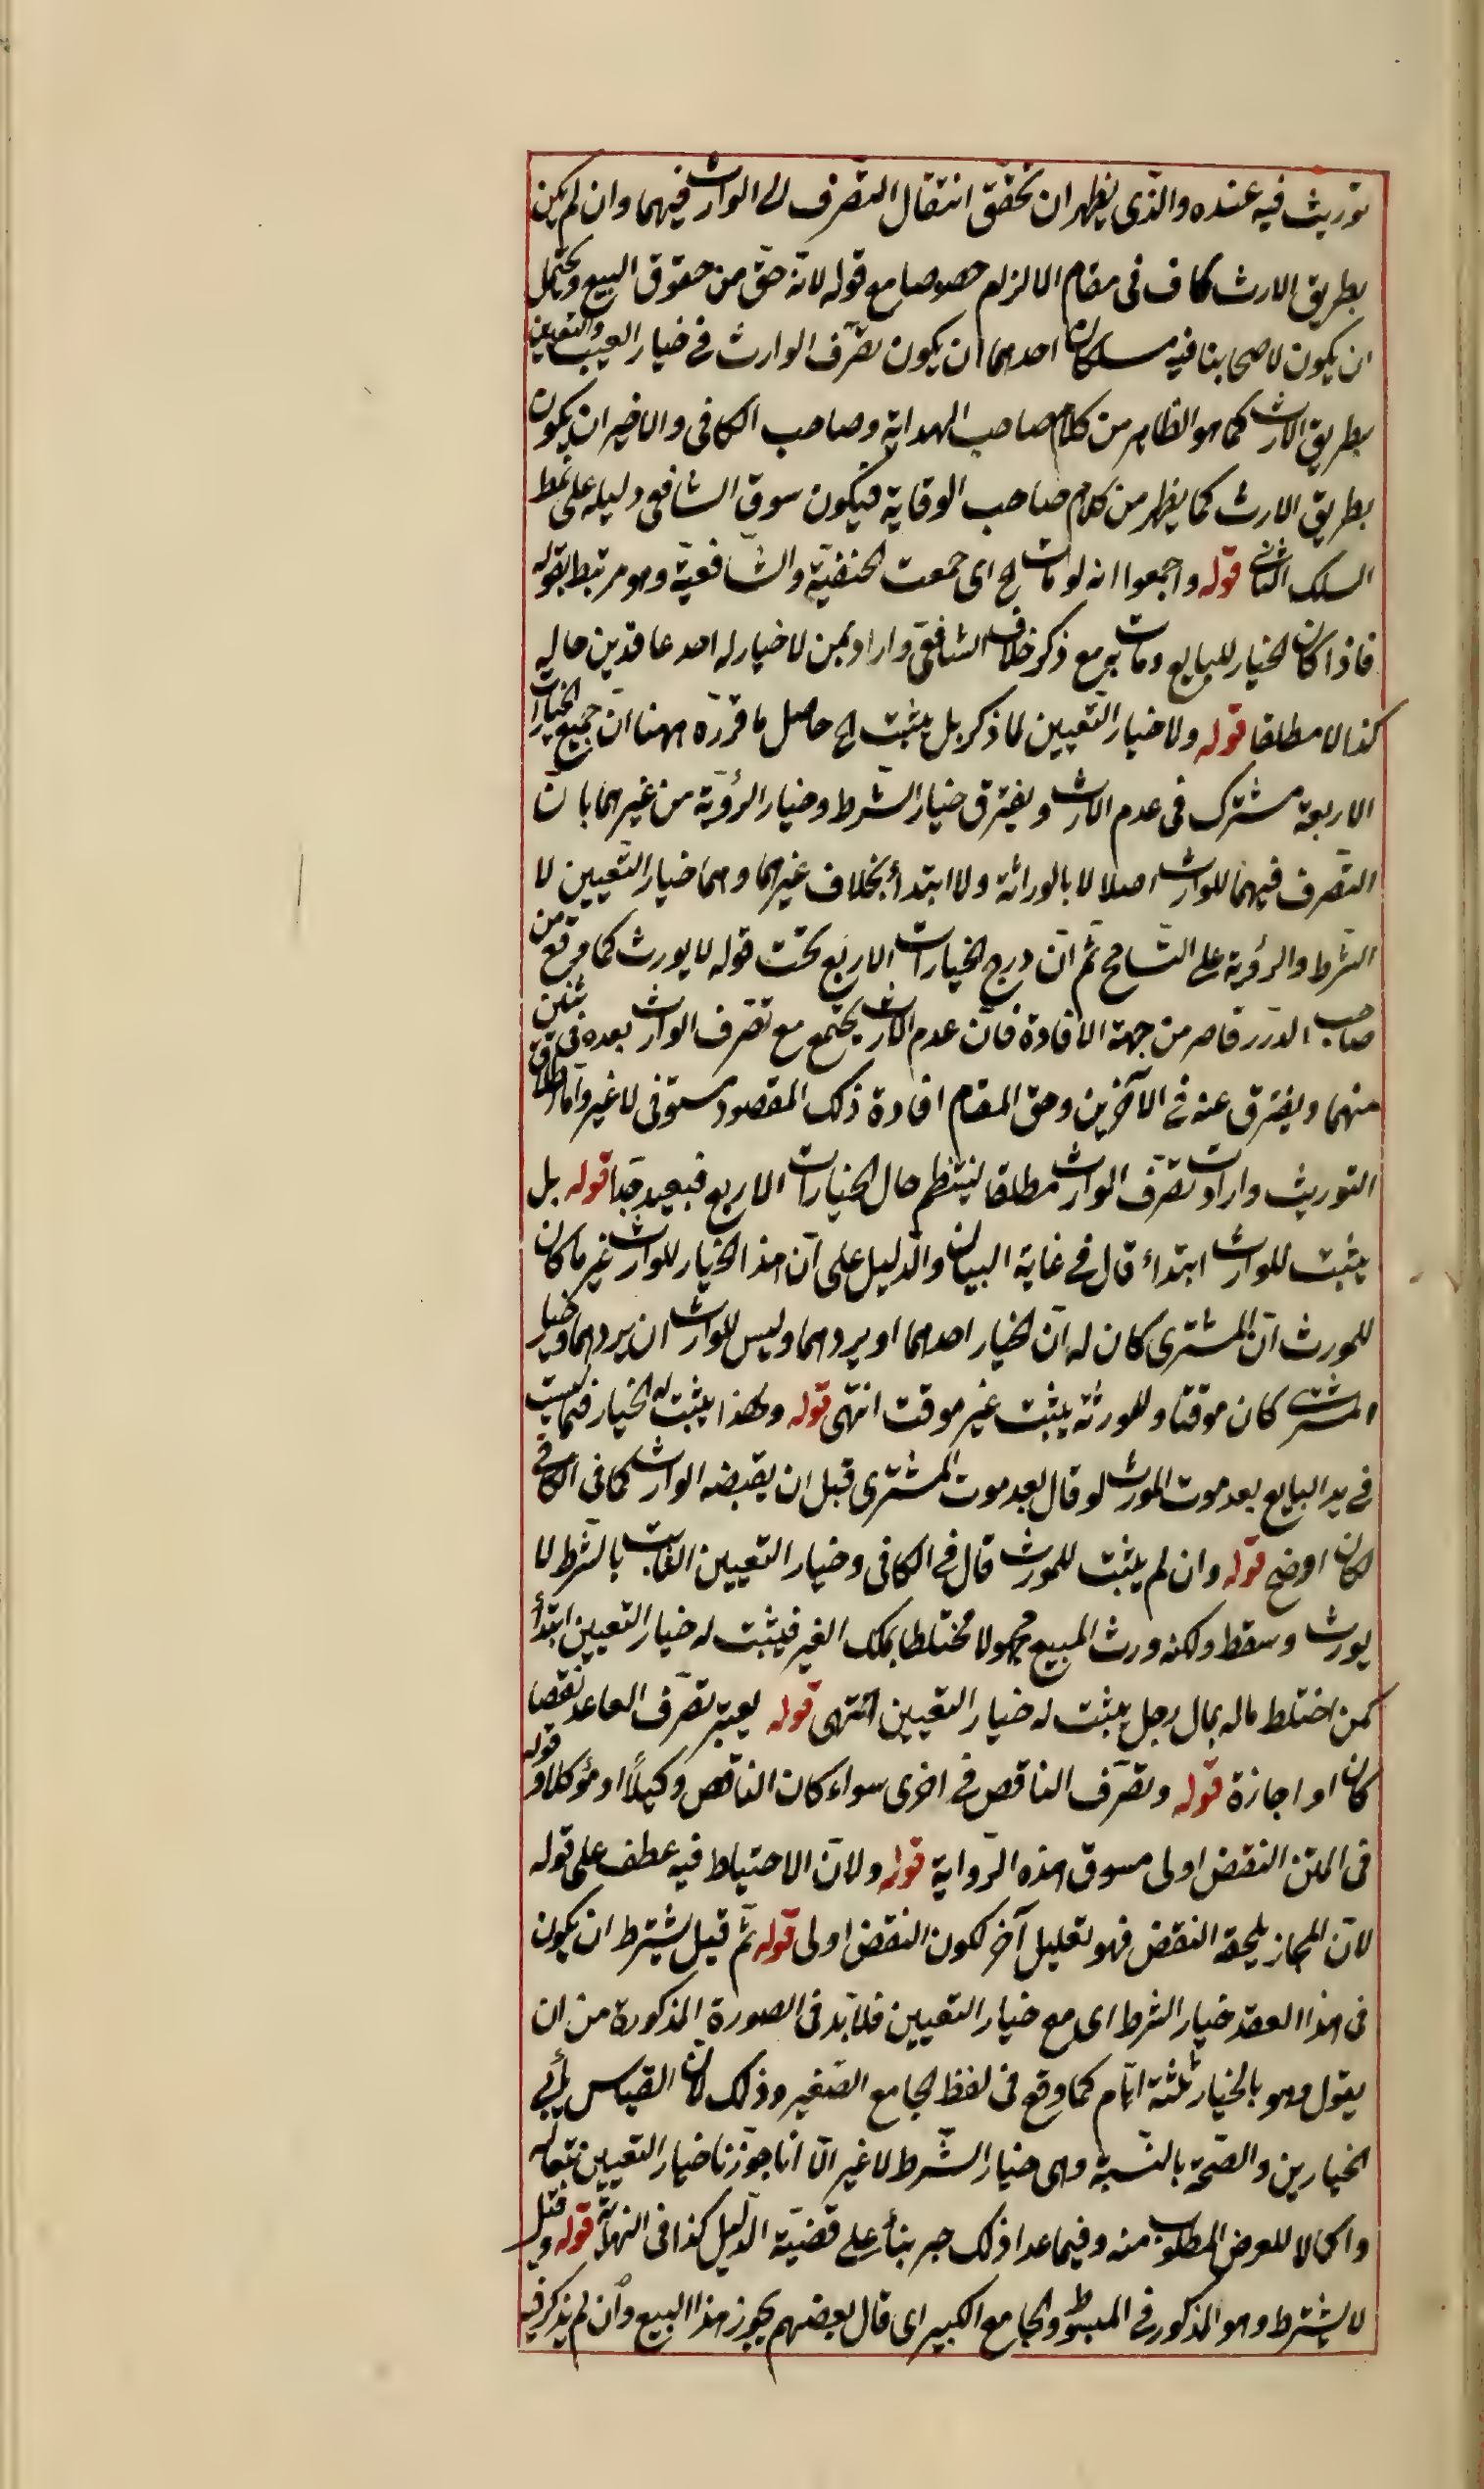 توريث فيه عنده والذى يظهر ان تحقق انتقال التصرف الى الوارث فيهما وان لم يكن
بطريق الارث كاف فى مقام الالزام خصوصا مع قوله لانه حق من حقوق البيع ويحتمل
ان يكون لاصحابنا فيه مسلكان احدهما ان يكون تصرف الوارث فى خيار العيب والتعيين
بطريق الارث كما هو الظاهر من كلام صاحب الهداية وصاحب الكافى والاخير ان يكون
بطريق الارث كما يظهر من كلام صاحب الوقاية فيكون سوق الشافعى دليله على نمط
المسلك الثانى قوله واجمعوا انه لو مات الخ اى جمعت الحنفية والشافعية وهو مرتبط بقوله
فاذا كان الخيار للبايع ومات مع ذكر خلاف الشافعى واراد بمن لا خيار له احد عاقدين حاله
كذا لا مطلقا قوله ولا خيار التعيين لما ذكر بل يثبت الخ حاصل ما قرره ههنا ان جميع الخيارات
الاربعة مشترك فى عدم الارث ويفترق خيار الشرط وخيار الرؤية من غيرهما بان
التصرف فيهما للوارث اصلا لا بالوراثة ولا ابتداء بخلاف غيرهما وهما خيار التعيين لا
الشرط والرؤية على التسامح ثم ان درج الخيارات الاربع تحت قوله لا يورث كما وقع من
صاحب الدرر قاصر من جهة الافادة فان عدم الارث يجتمع مع تصرف الوارث بعده فى ثنتين
منهما ويفترق عنه فى الآخرين وحق المقام افادة ذلك المقصود مستوفى لا غير واما اطلاق
التوريث وارادة تصرف الوارث مطلقا لينتظم حال الخيارات الاربع فبعيد جدا قوله بل
يثبت للوارث ابتداء قال فى غاية البيان والدليل على ان هذا الخيار للوارث غير ما كان
للمورث ان المشترى كان له ان يختار احدهما او يردهما وليس للوارث ان يردهما وخيار
المشترى كان موقتا وللورثة يثبت غير موقت انتهى قوله ولهذا يثبت له الخيار فيما تعيب
فى يد البايع بعد موت المورث لو قال بعد موت المشترى قبل ان يقبضه الوارث كما فى الكافى
لكان اوضح قوله وان لم يثبت للمورث قال فى الكافى وخيار التعيين الثابت بالشرط لا
يورث وسقط ولكنه ورث المبيع مجهولا مختلطا بملك الغير فيثبت له خيار التعيين ابتداء
كمن اختلط ماله بمال رجل يثبت له خيار التعيين انتهى قوله يعتبر تصرف العاقد نقضا
كان او اجازة قوله وتصرف الناقض فى اخرى سواء كان الناقض وكيلاً او مؤكلا وقوله
فى المتن النقض اولى مسوق هذه الرواية قوله ولان الاحتياط فيه عطف على قوله
لان المجاز يلحقه النقض فهو تعليل آخر لكون النقض اولى قوله ثم قيل يشترط ان يكون
فى هذا العقد خيار الشرط اى مع خيار التعيين فلا بد فى الصورة المذكورة من ان
يقول وهو بالخيار ثلثة ايام كما وقع فى لفظ الجامع الصغير وذلك لان القياس يأبى
الخيارين والصحة بالنسبة وهى خيار الشرط لا غير الا انا جوزنا خيار التعيين تبعا له
واكمالا للعوض المطلوب منه وفيما عدا ذلك جبر بناء على قضية الدليل كذا فى النهاية قوله وقيل
لا يشترط وهو المذكور فى المبسوط والجامع الكبير اى قال بعضهم يجوز هذا البيع وان لم يذكر فيه